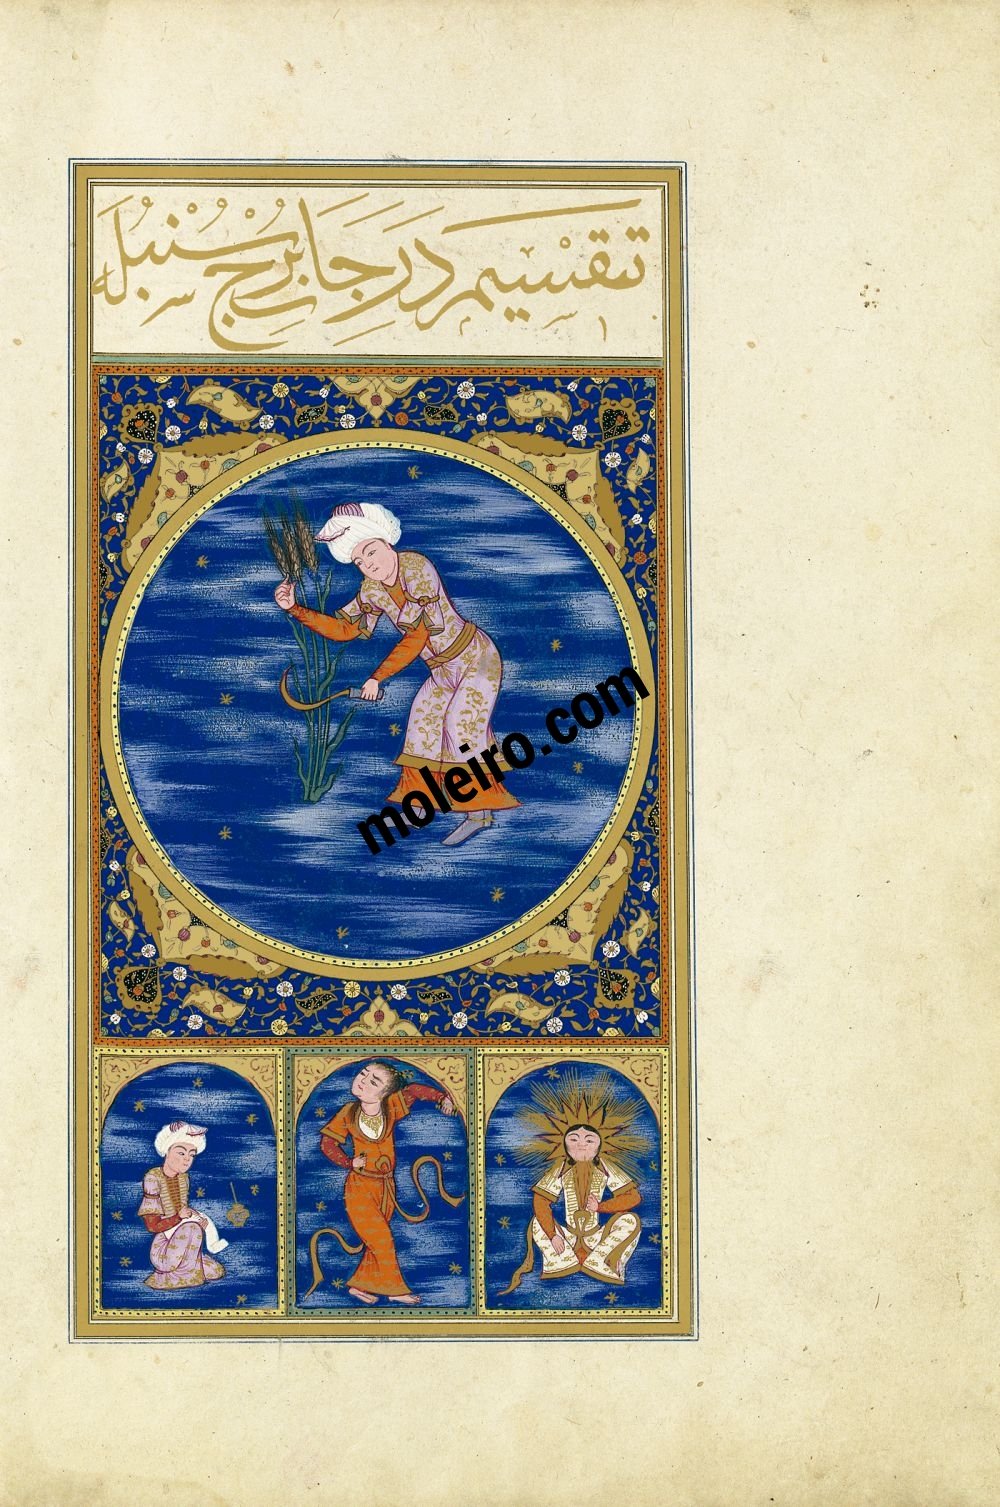 تقسيم درجات برج سنبله
moleiro.com